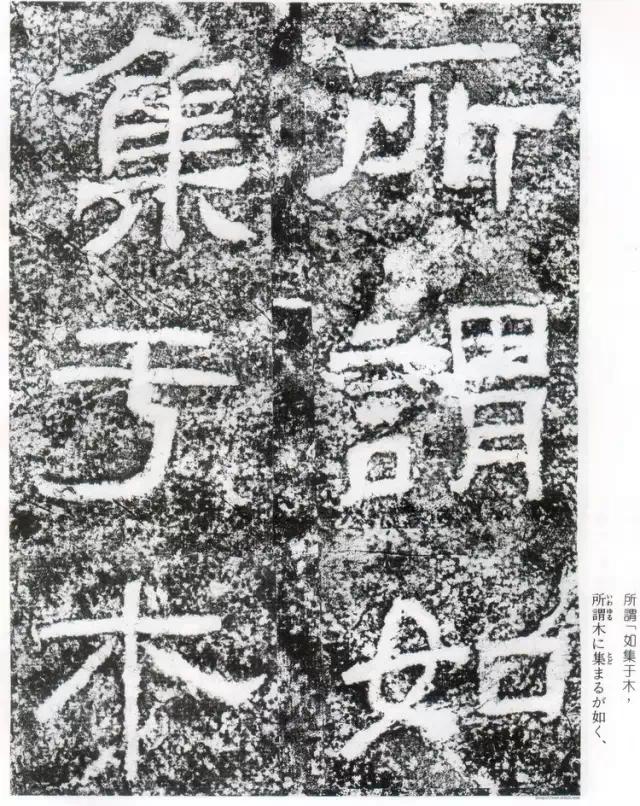 所謂如
集于木
所謂「如集于木，
所謂木に集まるが如く、